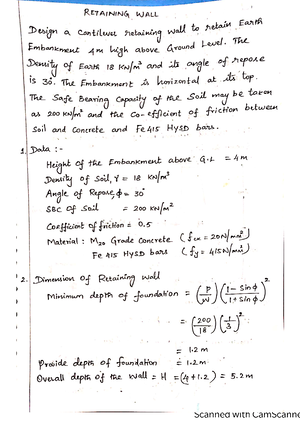 RETAINING WALL
Design a Cantilever retaining wall to retain Earth
Embankment 4m high above Ground Level. The
Density of Earth 18 KN/m³ and its angle of repose
is 30°. The Embankment is horizontal at its top.
The Safe Bearing Capacity of the Soil may be taken
as 200 KN/m² and the Co-efficient of friction between
Soil and Concrete and Fe415 HYSD bars.
1. Data :-
Height of the Embankment above G.L = 4m
Density of Soil, γ = 18 KN/m³
Angle of Repose, ϕ = 30°
SBC of Soil = 200 KN/m²
Coefficient of friction = 0.5
Material : M20 Grade Concrete (fck = 20N/mm²)
Fe 415 HYSD bars (fy = 415N/mm²)
2. Dimension of Retaining Wall
Minimum depth of foundation = (P/W) (1 - Sinϕ / 1 + Sinϕ)²
= (200/18) (1/3)²
= 1.2m
Provide depth of foundation = 1.2m
Overall depth of the wall = H = (4+1.2) = 5.2m
Scanned with CamScanne